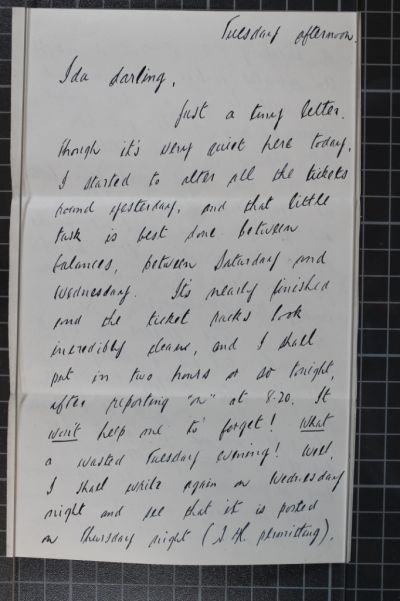 Tuesday afternoon.
Ida darling,
Just a tiny letter,
though it's very quiet here today.
I started to alter all the tickets
round yesterday, and that little
task is best done between
balances, between Saturday and
Wednesday. It's nearly finished
and the ticket racks look
incredibly clean, and I shall
put in two hours or so tonight,
after reporting "on" at 8-20. It
won't help me to forget! What
a wasted Tuesday evening! Well,
I shall write again on Wednesday
night and see that it is posted
on Thursday night (S.H. permitting).